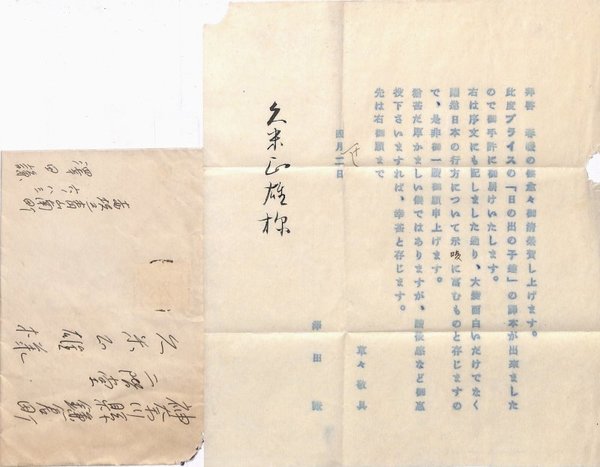 拝啓　春暖の候愈々御清榮賀し上げます。
此度プライスの「日の出の子達」の譯本が出來ました
ので御手許に御届けいたします。
右は序文にも記しました通り、大變面白いだけでなく
躍進日本の行方について示唆に富むものと存じますの
で、是非御一讀御願申上げます。
甚だ厚かましい儀ではありますが、讀後感など御惠
投下さいますれば、幸甚と存じます。
先は右御願まで
草々敬具
四月二日
澤田謙
久米正雄様
神奈川縣鎌倉町
二階堂
久米正雄様
赤坂區青山南町
六ノ八三
澤田謙